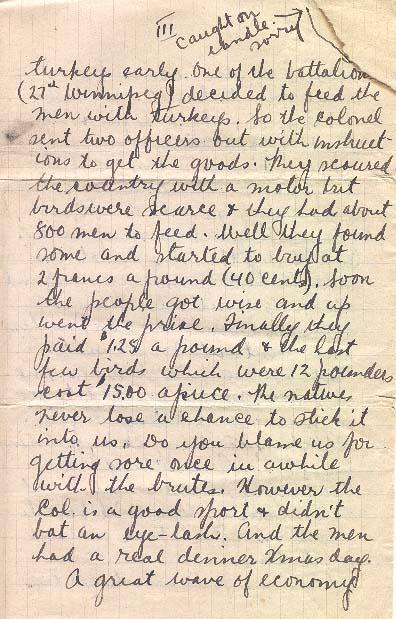 III
Caught on
candle.
sorry
turkeys early. One of the battalions
(27th Winnipeg) decided to feed the
men with turkeys. So the colonel
sent two officers out with instruct-
ions to get the goods. They scoured
the country with a motor but
birds were scarce & they had about
800 men to feed. Well they found
some and started to buy at
2 francs a pound (40 cents). Soon
the people got wise and up
went the price. Finally they
paid $1.28 a pound & the last
few birds which were 12 pounders
cost $15.00 apiece. The natives
never lose a chance to stick it
into us. Do you blame us for
getting sore once in awhile
with the brutes. However the
Col. is a good sport & didn't
bat an eye-lash. And the men
had a real dinner Xmas day.
A great wave of economy